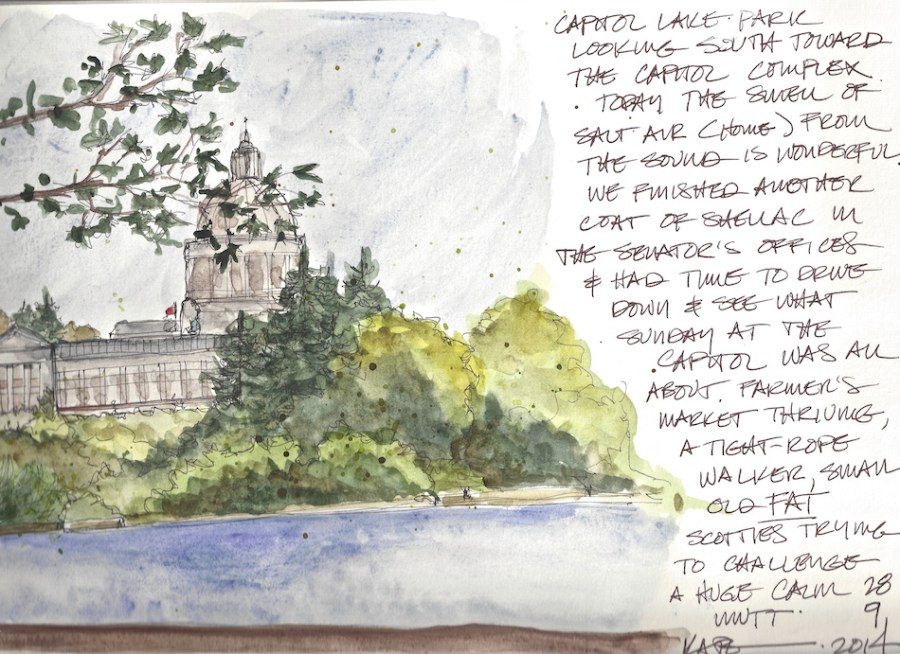 CAPITOL LAKE PARK
LOOKING SOUTH TOWARD
THE CAPITOL COMPLEX.
. TODAY THE SMELL OF
SALT AIR (HOME) FROM
THE SOUND IS WONDERFUL.
WE FINISHED ANOTHER
COAT OF SHELLAC IN
THE SENATOR'S OFFICES
& HAD TIME TO DRIVE
DOWN & SEE WHAT
SUNDAY AT THE
CAPITOL WAS ALL
ABOUT. FARMER'S
MARKET THRIVING,
A TIGHT-ROPE
WALKER, SMALL
OLD FAT
SCOTTIES TRYING
TO CHALLENGE
A HUGE CALM
MUTT.
28
9
2014